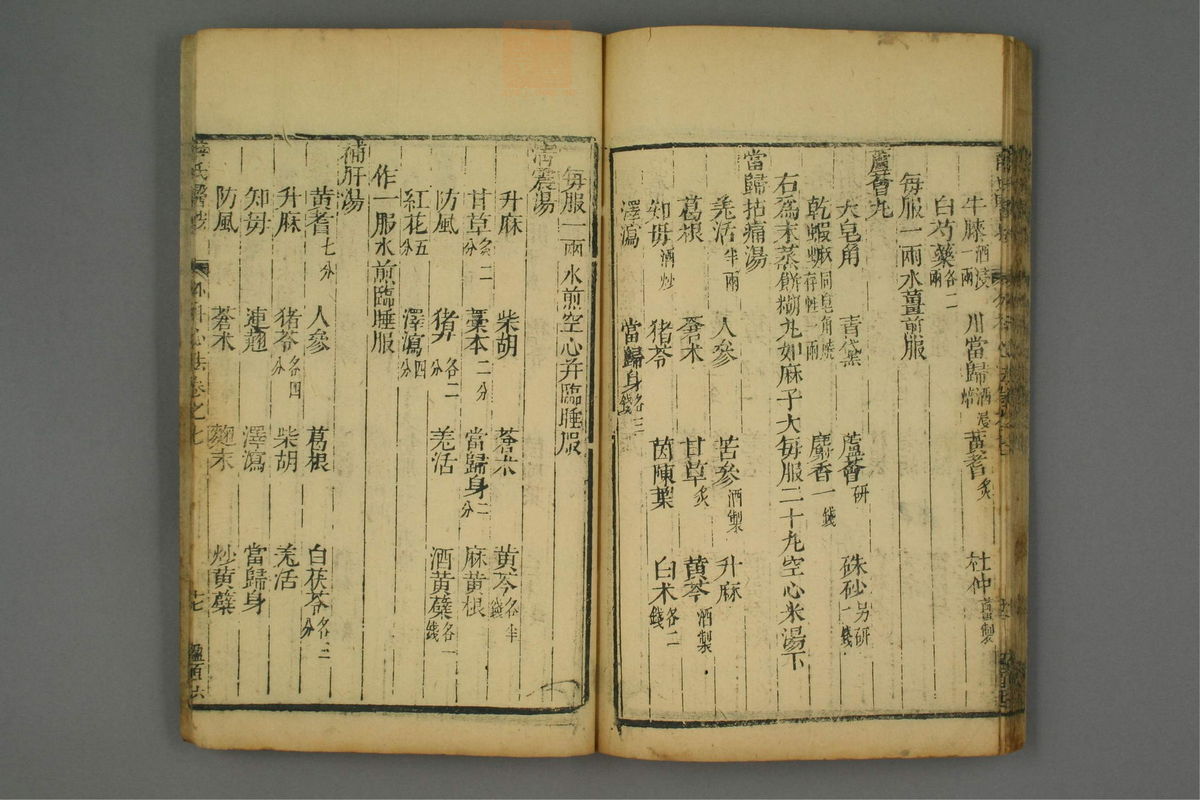 牛膝酒浸一兩 川當歸酒浸焙 黃耆炙 杜仲薑製
白芍藥各二兩
每服一兩水薑煎服
蘆薈丸
大皂角 青黛 蘆薈研 硃砂另研一錢
乾蝦蟆同皂角燒存性一兩 麝香一錢
右為末蒸餅糊丸如麻子大每服二十丸空心米湯下
當歸拈痛湯
羗活半兩 人參 苦參酒製 升麻
葛根 蒼术 甘草炙 黃芩酒製
知毋酒炒 猪苓 茵陳葉 白术各二錢
澤瀉 當歸身各三錢
每服一兩水煎空心并臨睡服
清震湯
升麻 柴胡 蒼术 黃芩各半錢
甘草炙二分 藁本二分 當歸身二分 麻黃根
防風 猪苓各二分 羗活 酒黃蘗各一錢
紅花五分 澤瀉四分
作一服水煎臨睡服
補肝湯
黃耆七分 人參 葛根 白茯苓各三分
升麻 猪苓各四分 柴胡 羗活
知毋 連翹 澤瀉 當歸身
防風 蒼术 麯末 炒黃蘗
薛氏醫 外科心法卷之七 十七